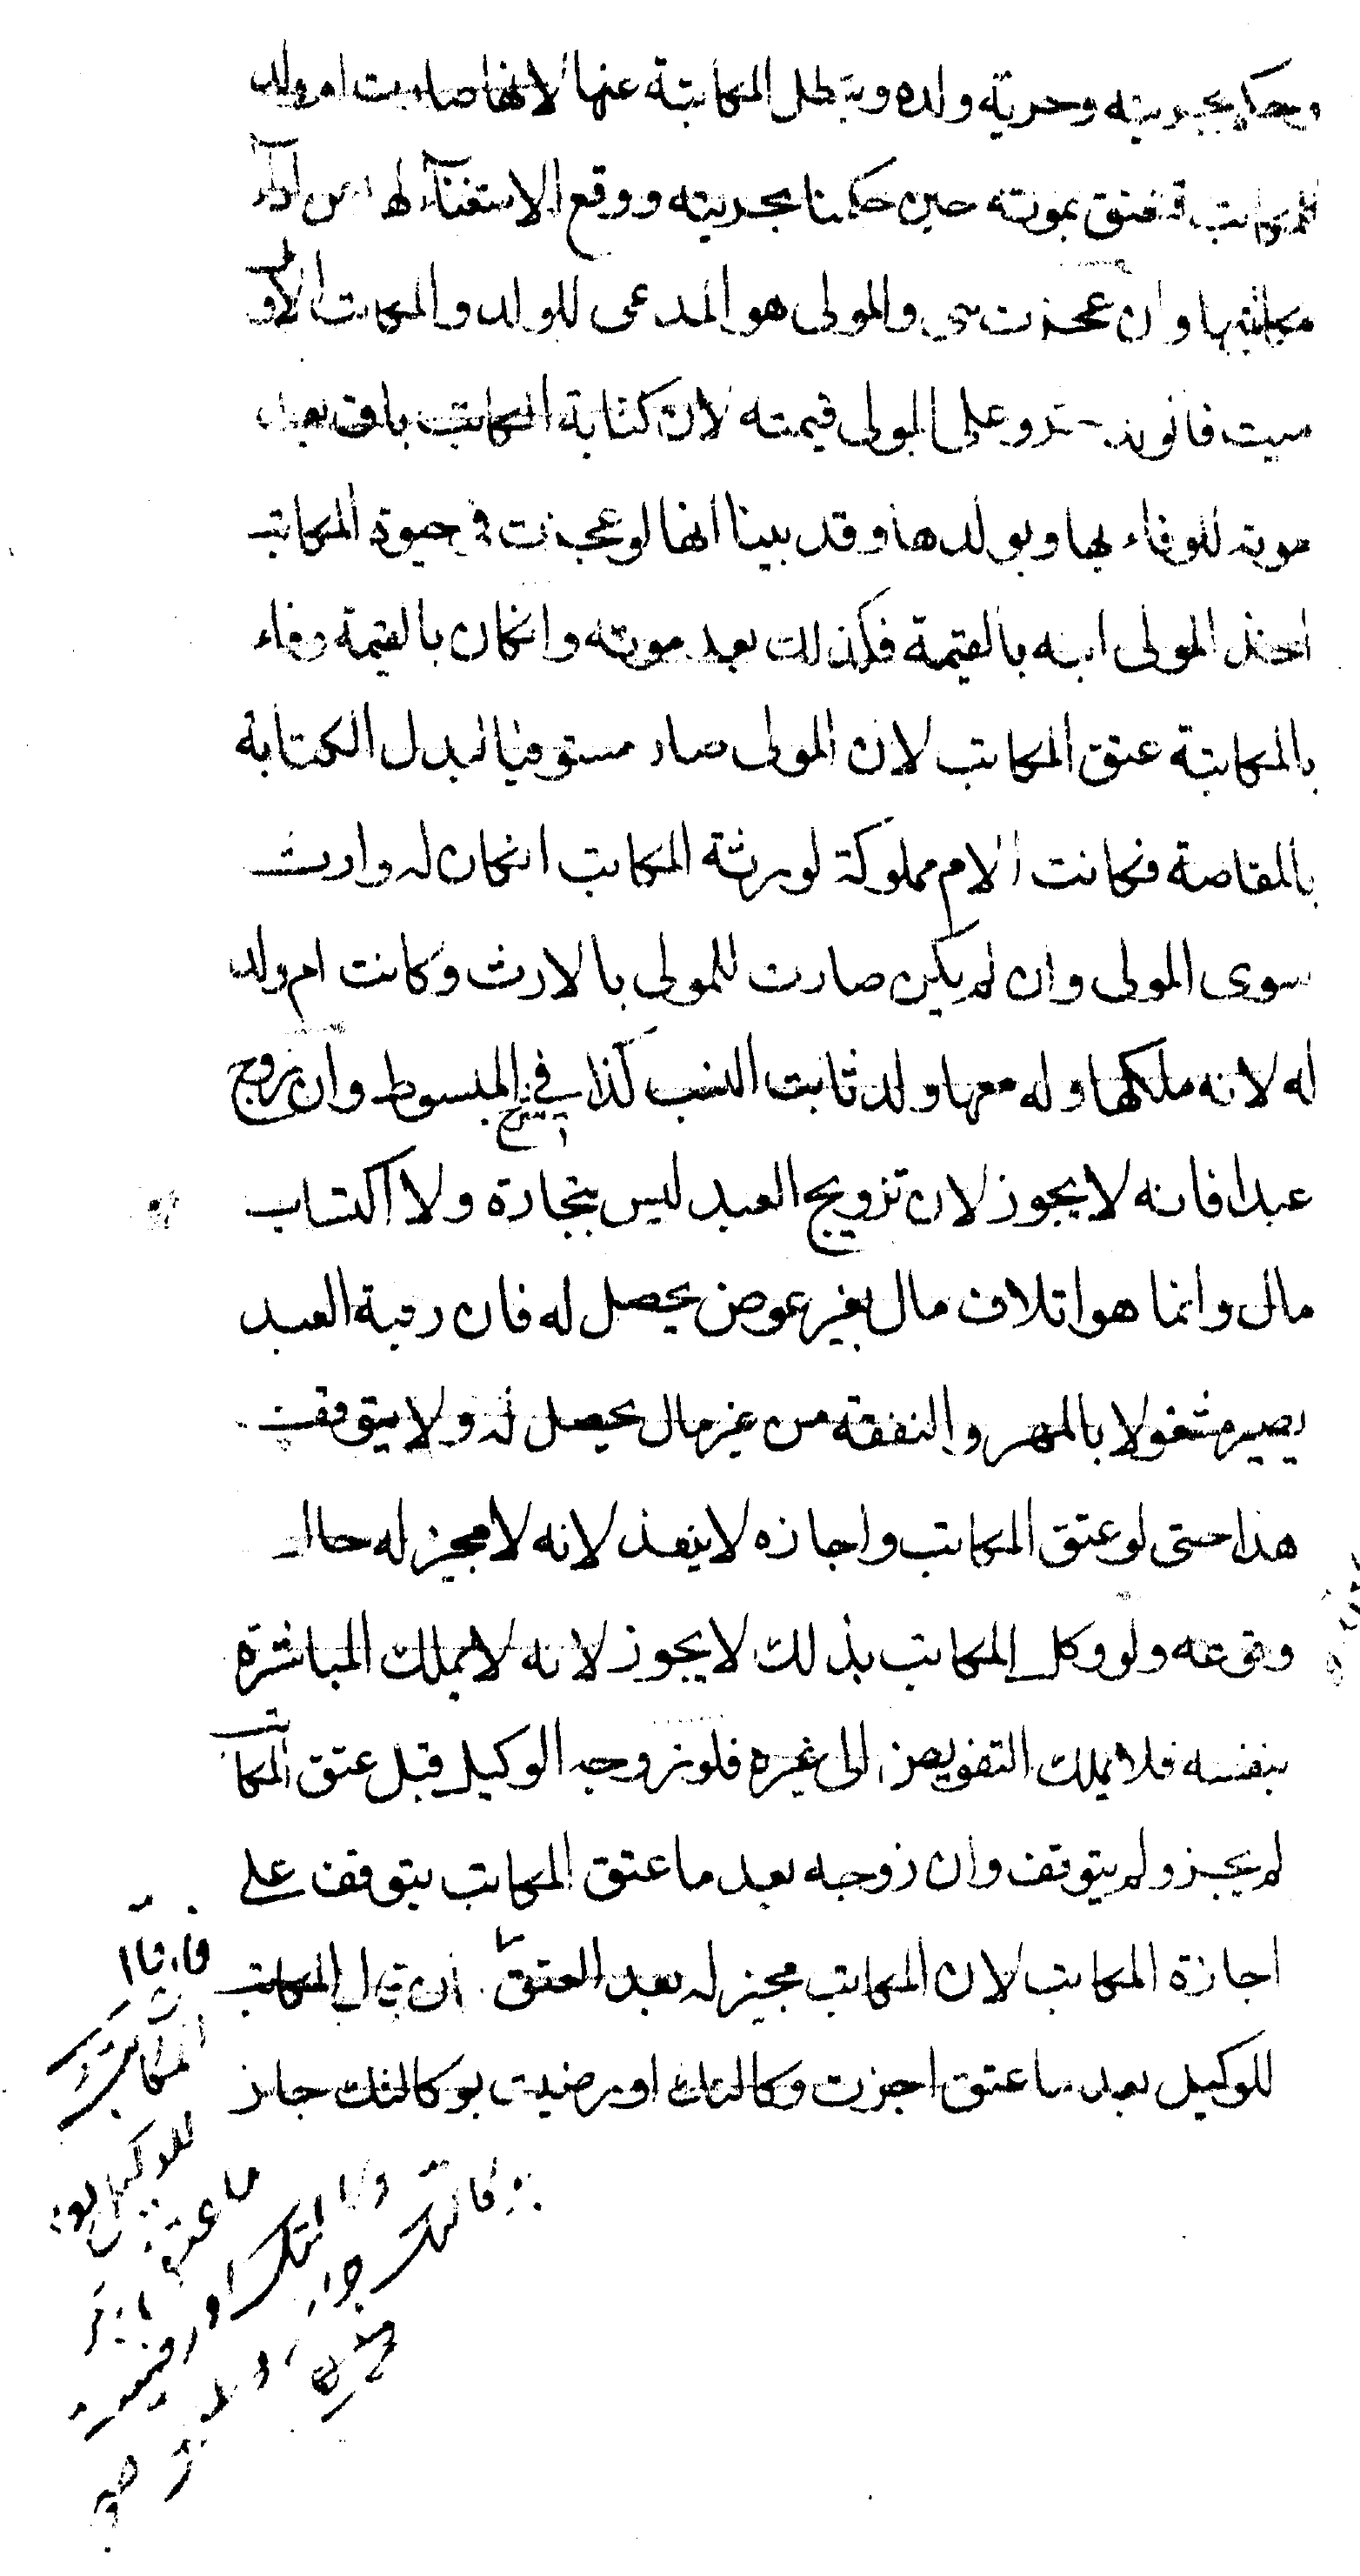 وحكم بحريته وحرية ولده وتبطل المكاتبة عنها لانها صارت ام ولد
للمكاتب فتعتق بموته حين حكمنا بحريته ووقع الاستغناء لها من اداء
مكاتبتها وان عجزت هي والمولى هو المدعى للولد والمكاتب الاول
ميت على المولى قيمته لان كتابة المكاتب باق بعد
موته للوفاء بها وبولدها وقد بينا انها لو عجزت في حيوة المكاتب
اخذ المولى ابنه بالقيمة فكذلك بعد موته وانكان بالقيمة وفاء
بالمكاتبة عتق المكاتب لان المولى صار مستوفيا لبدل الكتابة
بالمقاصة فكانت الام مملوكة لورثة المكاتب انكان له وارث
سوى المولى وان لم يكن صارت للمولى بالارث وكانت ام ولد
له لانه ملكها وله معها ولد ثابت النسب كذا في شرح المبسوط وان زوج
عبدا فانه لا يجوز لان تزويج العبد ليس بتجارة ولا اكتساب
مال وانما هو اتلاف مال بغير عوض يحصل له فان رقبة العبد
يصير مشغولا بالمهر والنفقة من غير مال يحصل له ولا يتوقف
هذا حتى لو عتق المكاتب واجازه لا ينفذ لانه لا مجيز له حال
وقوعه ولو وكل المكاتب بذلك لا يجوز لانه لا يملك المباشرة
بنفسه فلا يملك التفويض الى غيره فلو زوجه الوكيل قبل عتق المكاتب
لم يجز ولم يتوقف وان زوجه بعد ما عتق المكاتب يتوقف على
اجازة المكاتب لان المكاتب مجيز له بعد العتق ان قال المكاتب
للوكيل بعد ما عتق اجزت وكالتك او رضيت بوكالتك جاز
فان قال
المكاتب
للوكيل بعد
ما عتق
وكالتك او رضيت
بوكالتك جاز